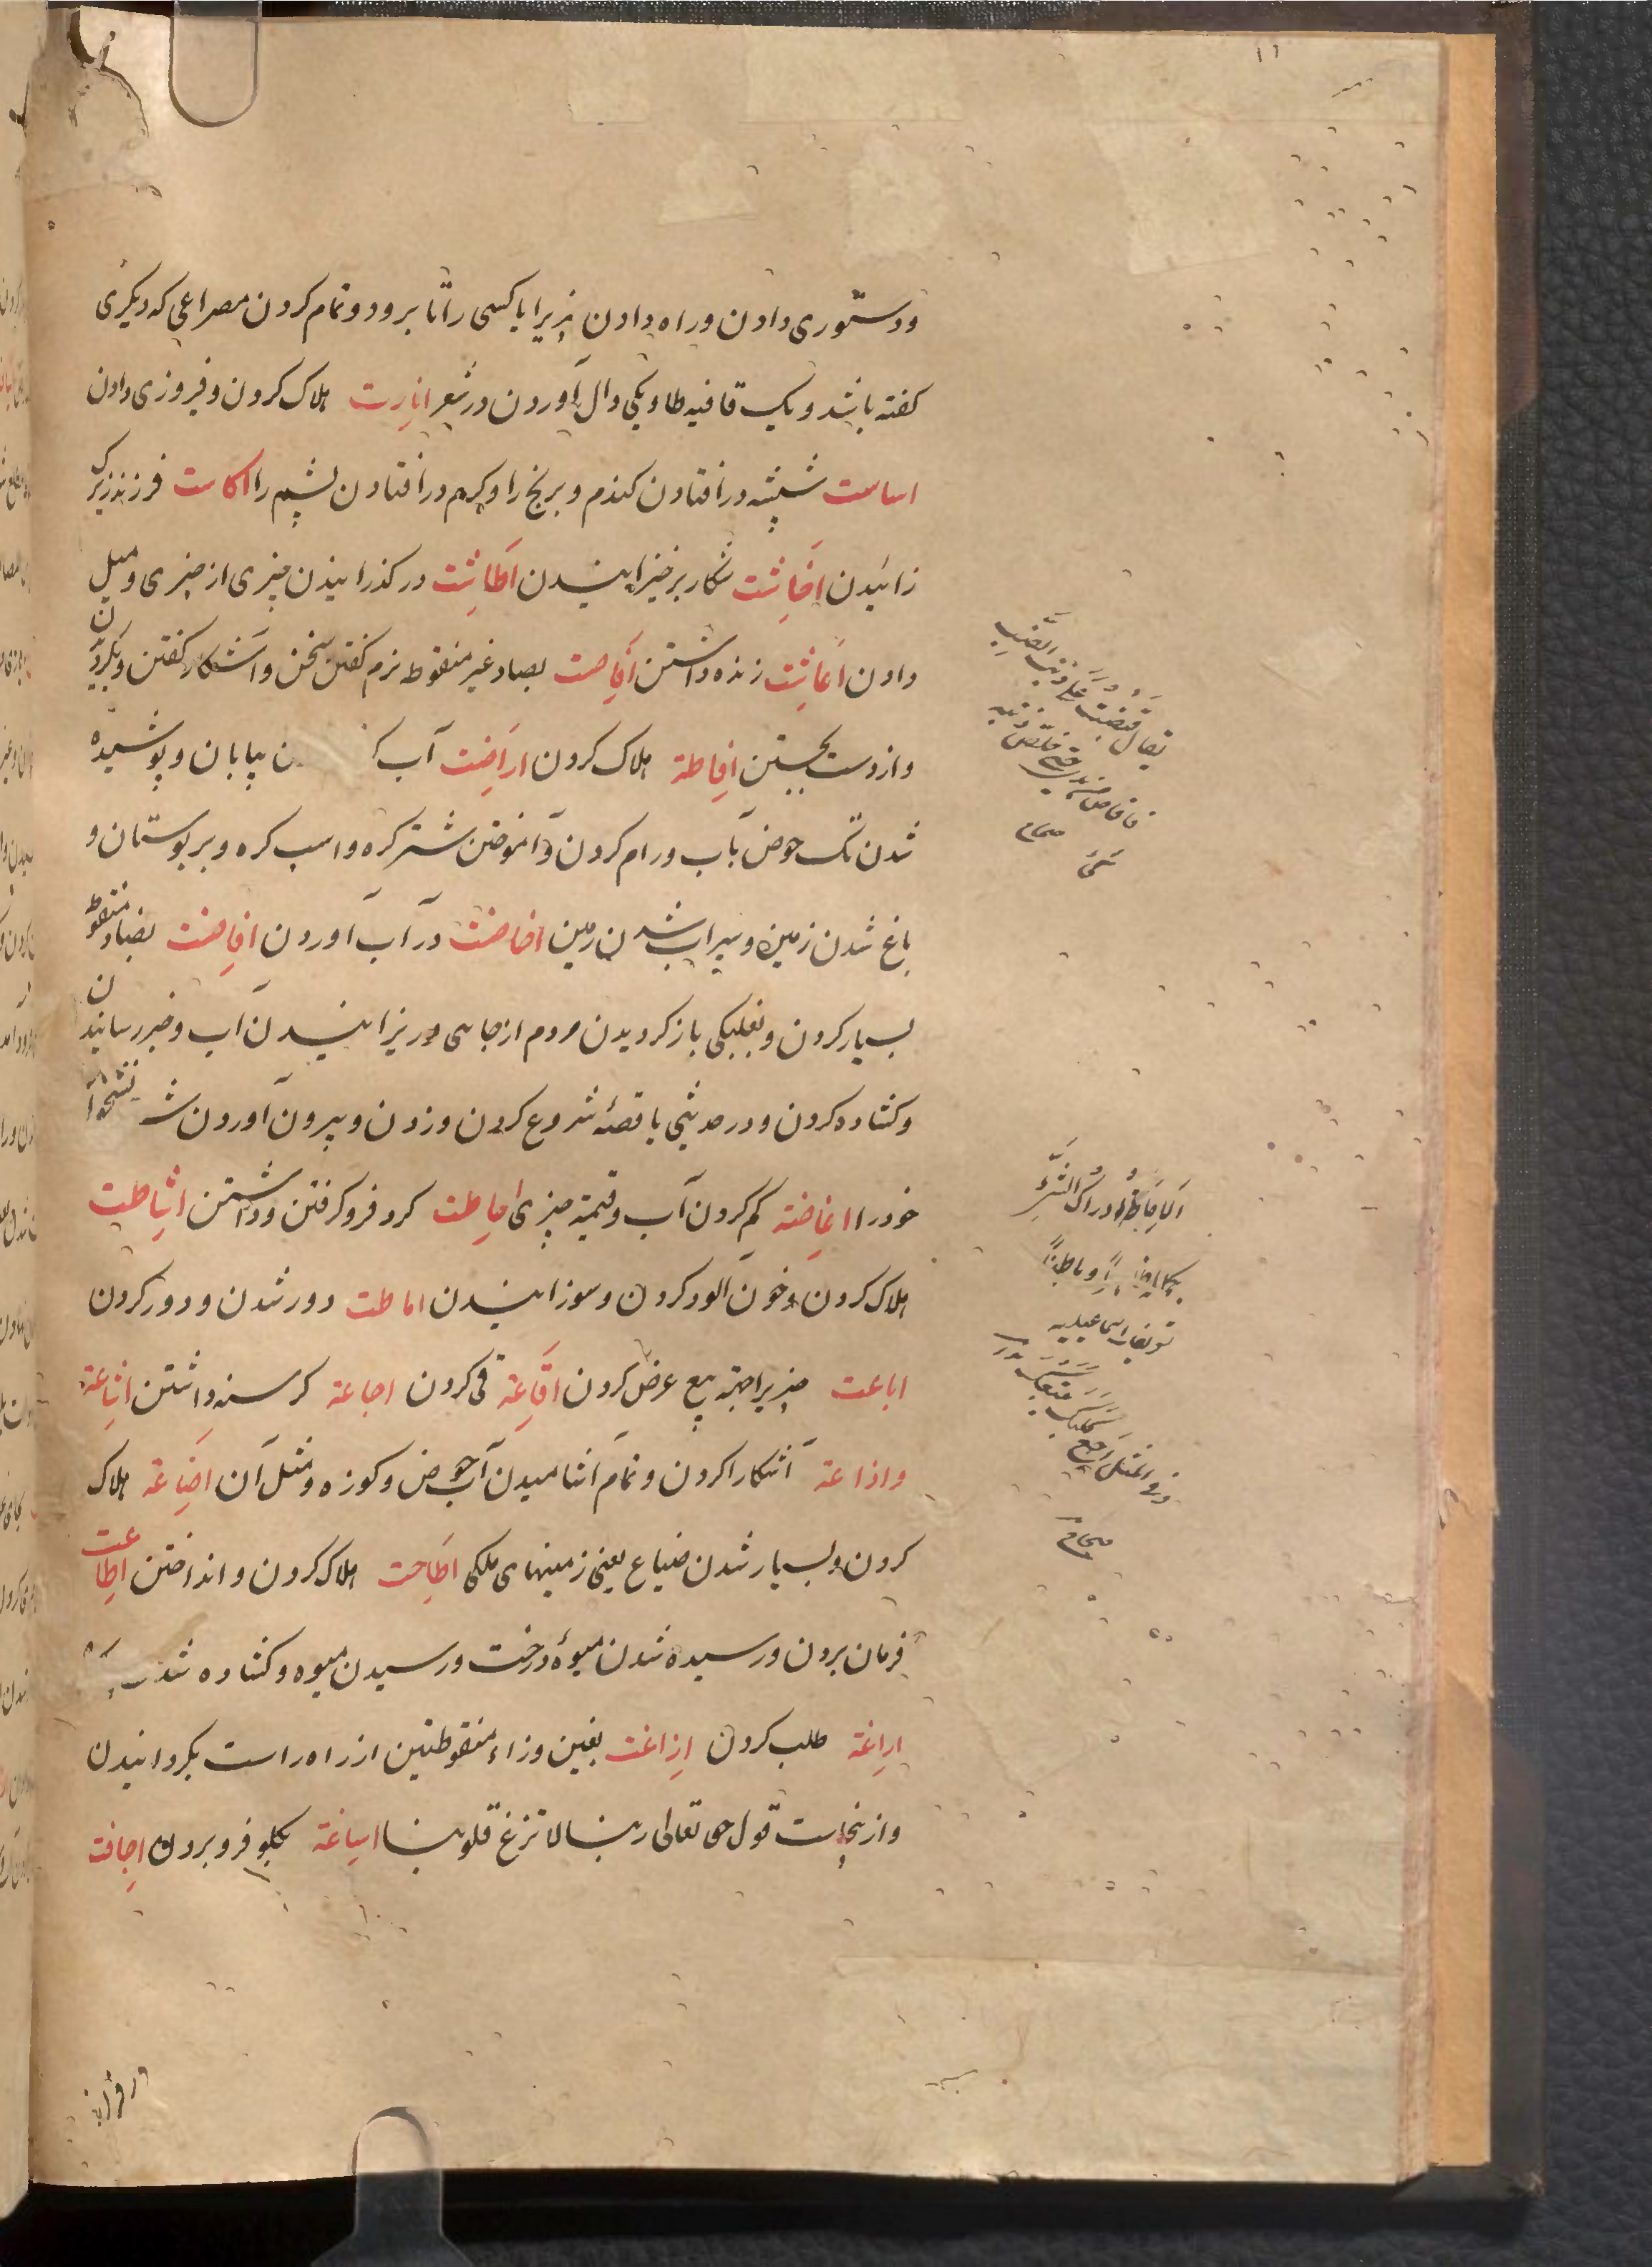 ۱۱
ودستوری دادن وراه دادن چیزیرا یا کسی را تا برود وتمام کردن مصراعی که دیکری
کفته باشد ویک قافیه طا ویکی دال آوردن در شعر ابارت هلاک کردن وفیروزی دادن
اساست شپشه در افتادن کندم وبرنج را وکرم در افتادن پشم را اکاست فرزند زیرک
زائیدن اِحَاشت شکار برخیزانیدن اَطَاشت در کذرانیدن چیزی از چیزی ومیل
دادن اعَاشت زنده داشتن اَفَاصت بصاد غیر منقوط نرم کفتن سخن واشکار کفتن وبکردن
واز دست بجستن اِفَاطة هلاک کردن ارَاضت آب بیابان وپوشیده
شدن تک حوض بآب ورام کردن وآموختن شتر کره واسب کره وپر بوستان و
باغ شدن زمین وسیراب شدن زمین اخاضت در آب آوردن افاضت بضاد منقوط
بسیار کردن وبغلبکی باز کردیدن مردم از جاسی وریزانیدن آب وخبر رسانیدن
وکشاده کردن ودر حدیثی یا قصّهٔ شروع کردن وزدن وبیرون آوردن
خود را اغاضة کم کردن آب وقیمة چیزی اِحاطت کرد فرو کرفتن وداشتن اشاطت
هلاک کردن وخون آلود کردن وسوزانیدن اماطت دور شدن ودور کردن
اباعت چیزیرا جهة بیع عرض کردن اقَاعَة قی کردن اجاعة کرسنه داشتن اشِاعَة
واذاعة آشکارا کردن وتمام آشامیدن آب حوض وکوزه ومثل آن اضَاعة هلاک
کردن وبسیار شدن ضیاع یعنی زمینهای ملکی اطَاحت هلاک کردن وانداختن اطِاعت
فرمان بردن ورسیده شدن میوهٔ درخت ورسیدن میوه وکشاده شدن
اراغة طلب کردن ازاغت بغین وزاء منقوطتین از راه راست بکردانیدن
واز ینجاست قول حق تعالی ربنا لا تزغ قلوبنا اساغة بکلو فرو بردن اِجافت
یقال قبضت علی ذنب الضب
فافاص من یدی حتی خلص ذنبه
صحاح
الاحاطة ادراک الشیء
بکماله ظاهراً وباطناً
تعریفات اسماعیلیه
وفی المثل اجع کلبک یتبعک
صحاح